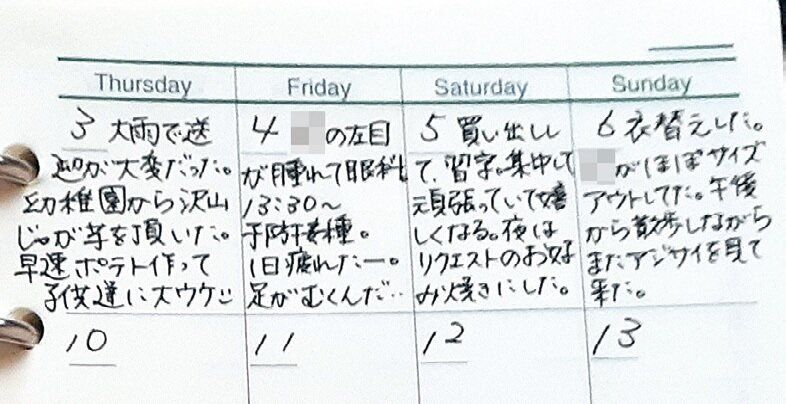 Thursday
3 大雨で送
迎が大変だった。
幼稚園から沢山
じゃが芋を頂いた。
早速ポテト作って
子供達に大ウケ
10
Friday
4 の左目
が腫れて眼科に
13:30~
予防接種。
1日疲れたー。
足がむくんだ‥
11
Saturday
5 買い出しし
て、習字。集中して
頑張っていて嬉
しくなる。夜は
リクエストのお好
み焼きにした。
12
Sunday
6 衣替えした。
がほぼサイズ
アウトしてた。午後
から散歩しながら
またアジサイを見て
来た。
13